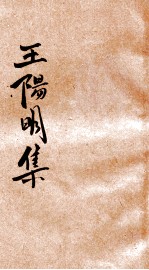 王陽明集